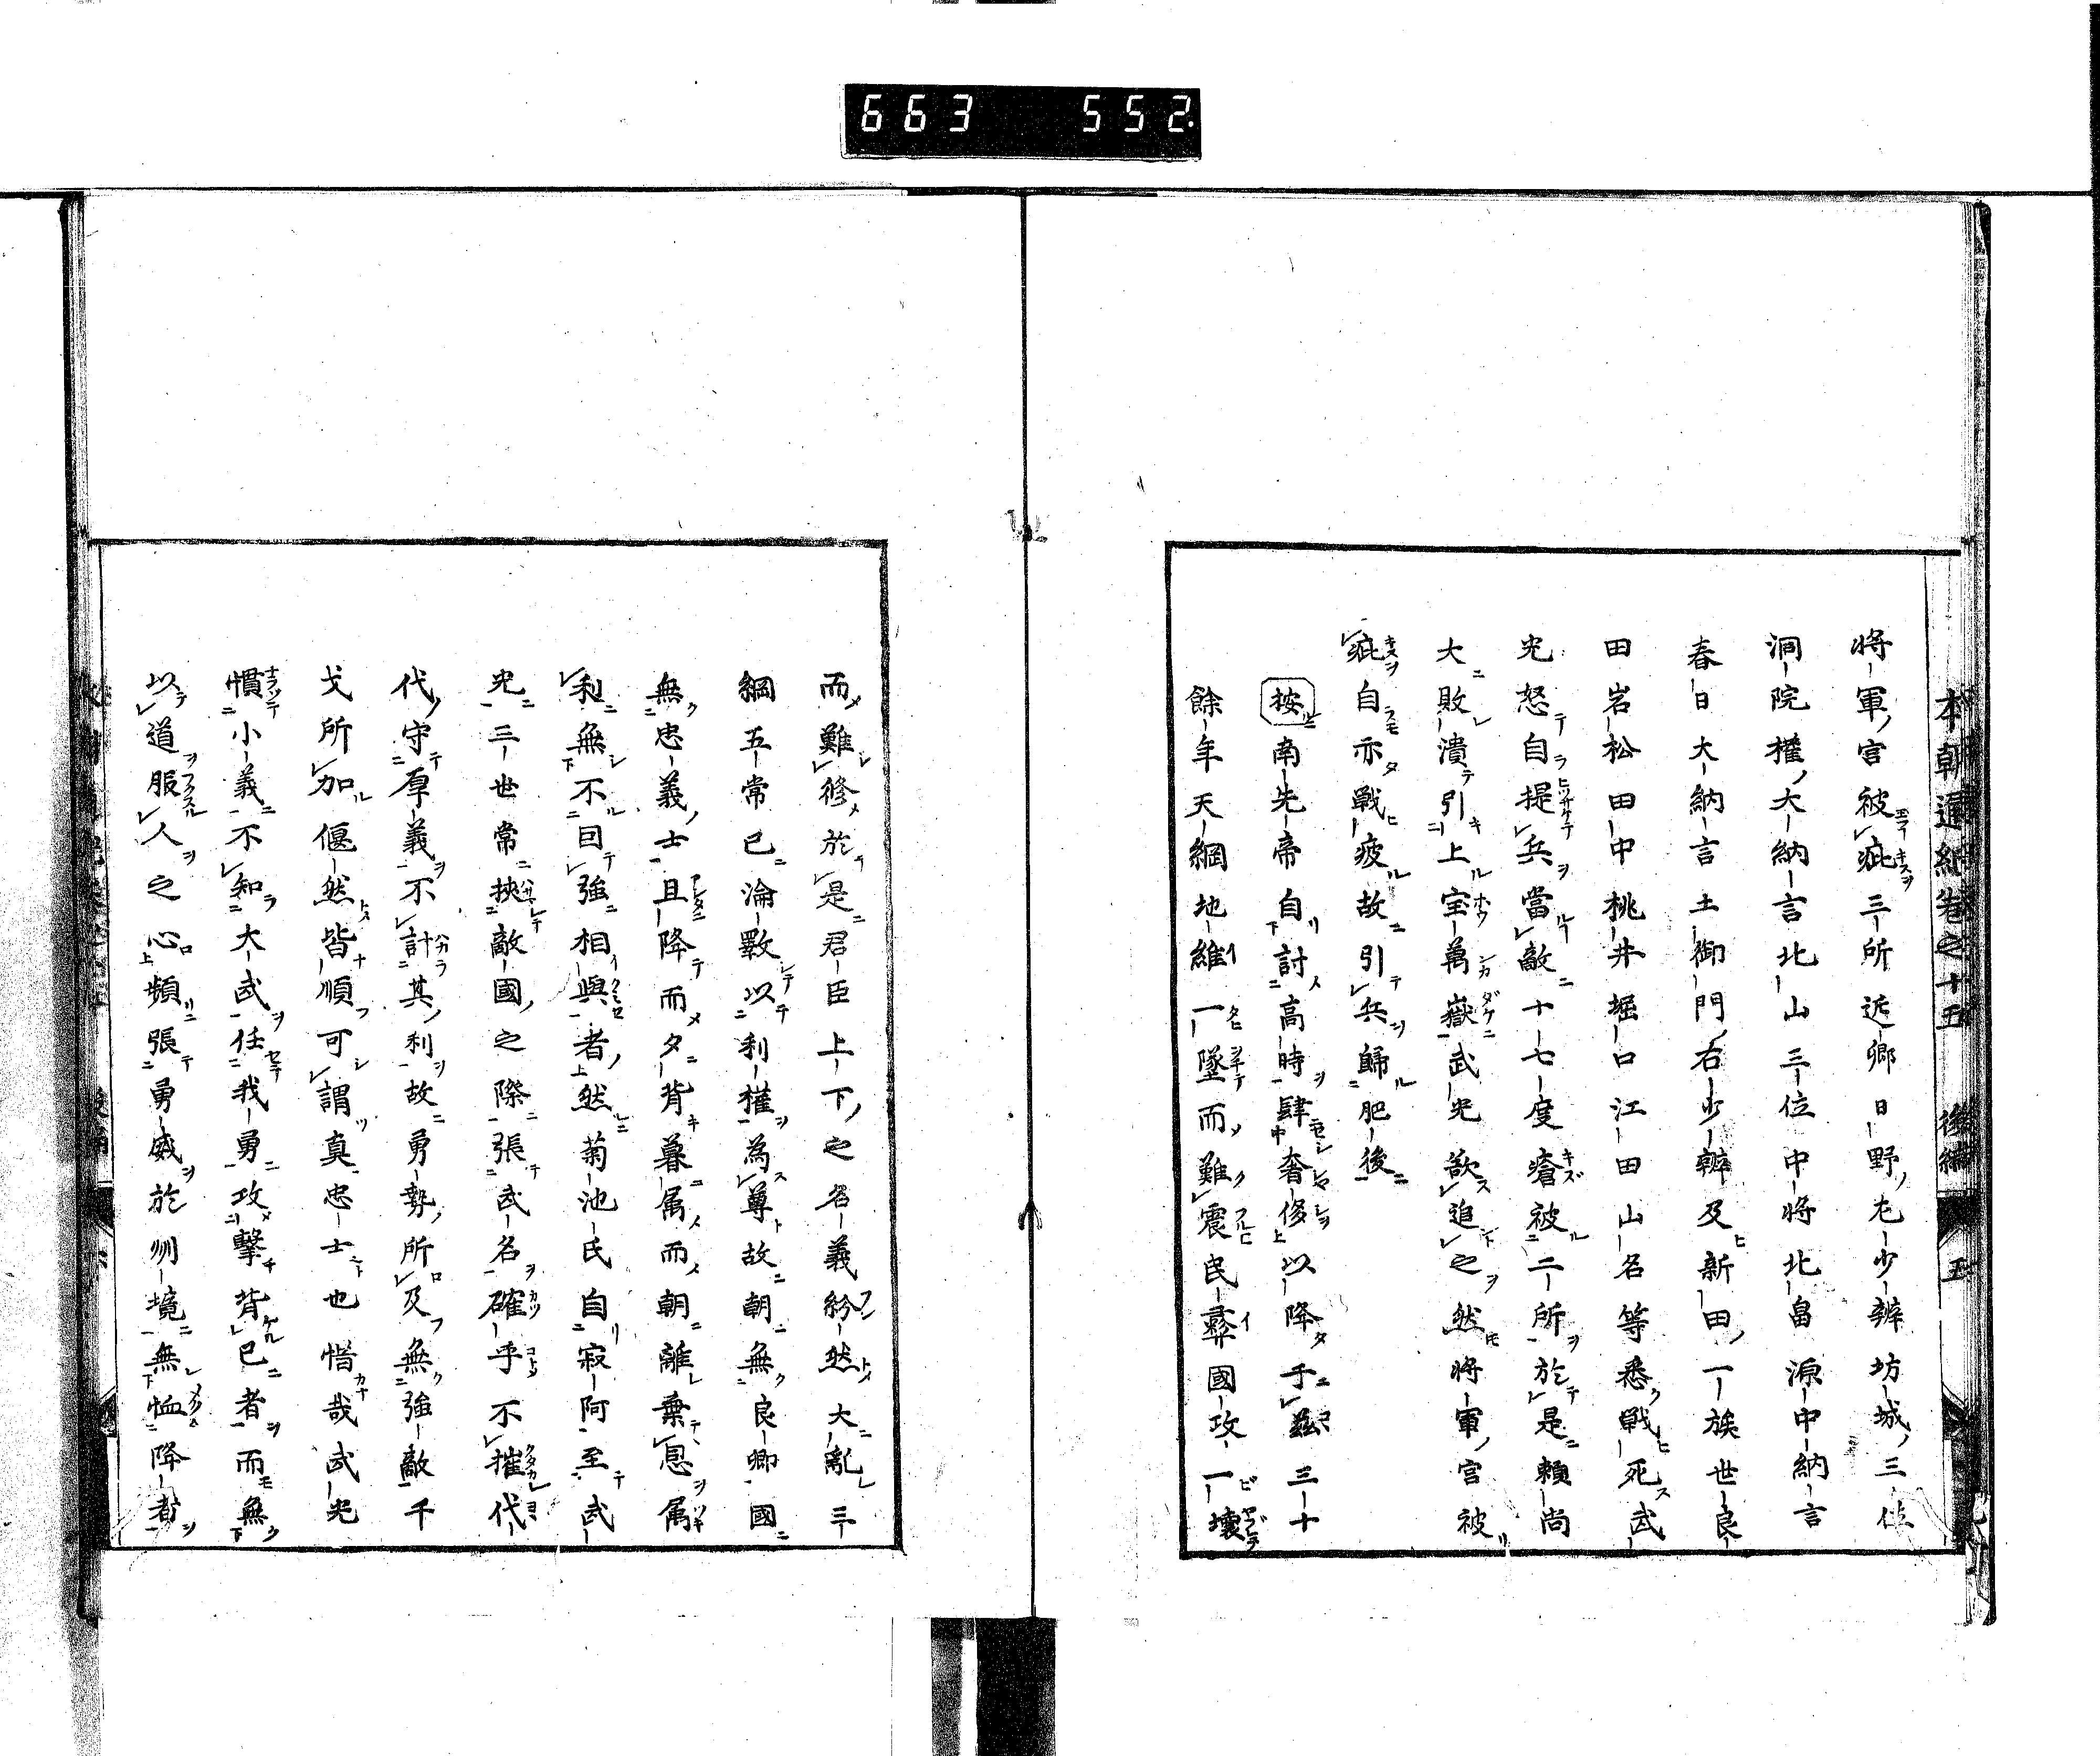 663 552
本朝通紀卷之十五 後編 五
將軍ノ宮被疵三所近卿日野ノ左少辨坊城ノ三位
洞院權ノ大納言北山三位中將北畠源中納言
春日大納言土御門ノ右少辨及新田ノ一族世良
田岩松田中桃井堀口江田山名等悉戰死武
光怒自提兵當敵十七度瘡被二所於是賴尚
大敗潰引上宝萬嶽武光欲追之然將軍ノ宮被
疵自亦戰疲故引兵歸肥後
按南先帝自討高時肆奢侈以降于茲三十
餘年天綱地維一墜而難震民彝國攻一壞
而難修於是君臣上下ノ之名義紛然大亂三
綱五常已淪斁以利權為尊故朝無良卿國
無忠義ノ士且降而夕背暮属而朝離棄息属
利無不回強相與者然菊池氏自寂阿至武
光三世常挾敵國ノ之際張武名確乎不摧代
代ノ守厚義不計其ノ利故勇勢ノ所及無強敵千
戈所加偃然皆順可謂真忠士也惜哉武光
慣小義不知大武任我勇攻擊背已者而無
以道服人之心頻張勇威於州境無恤降者